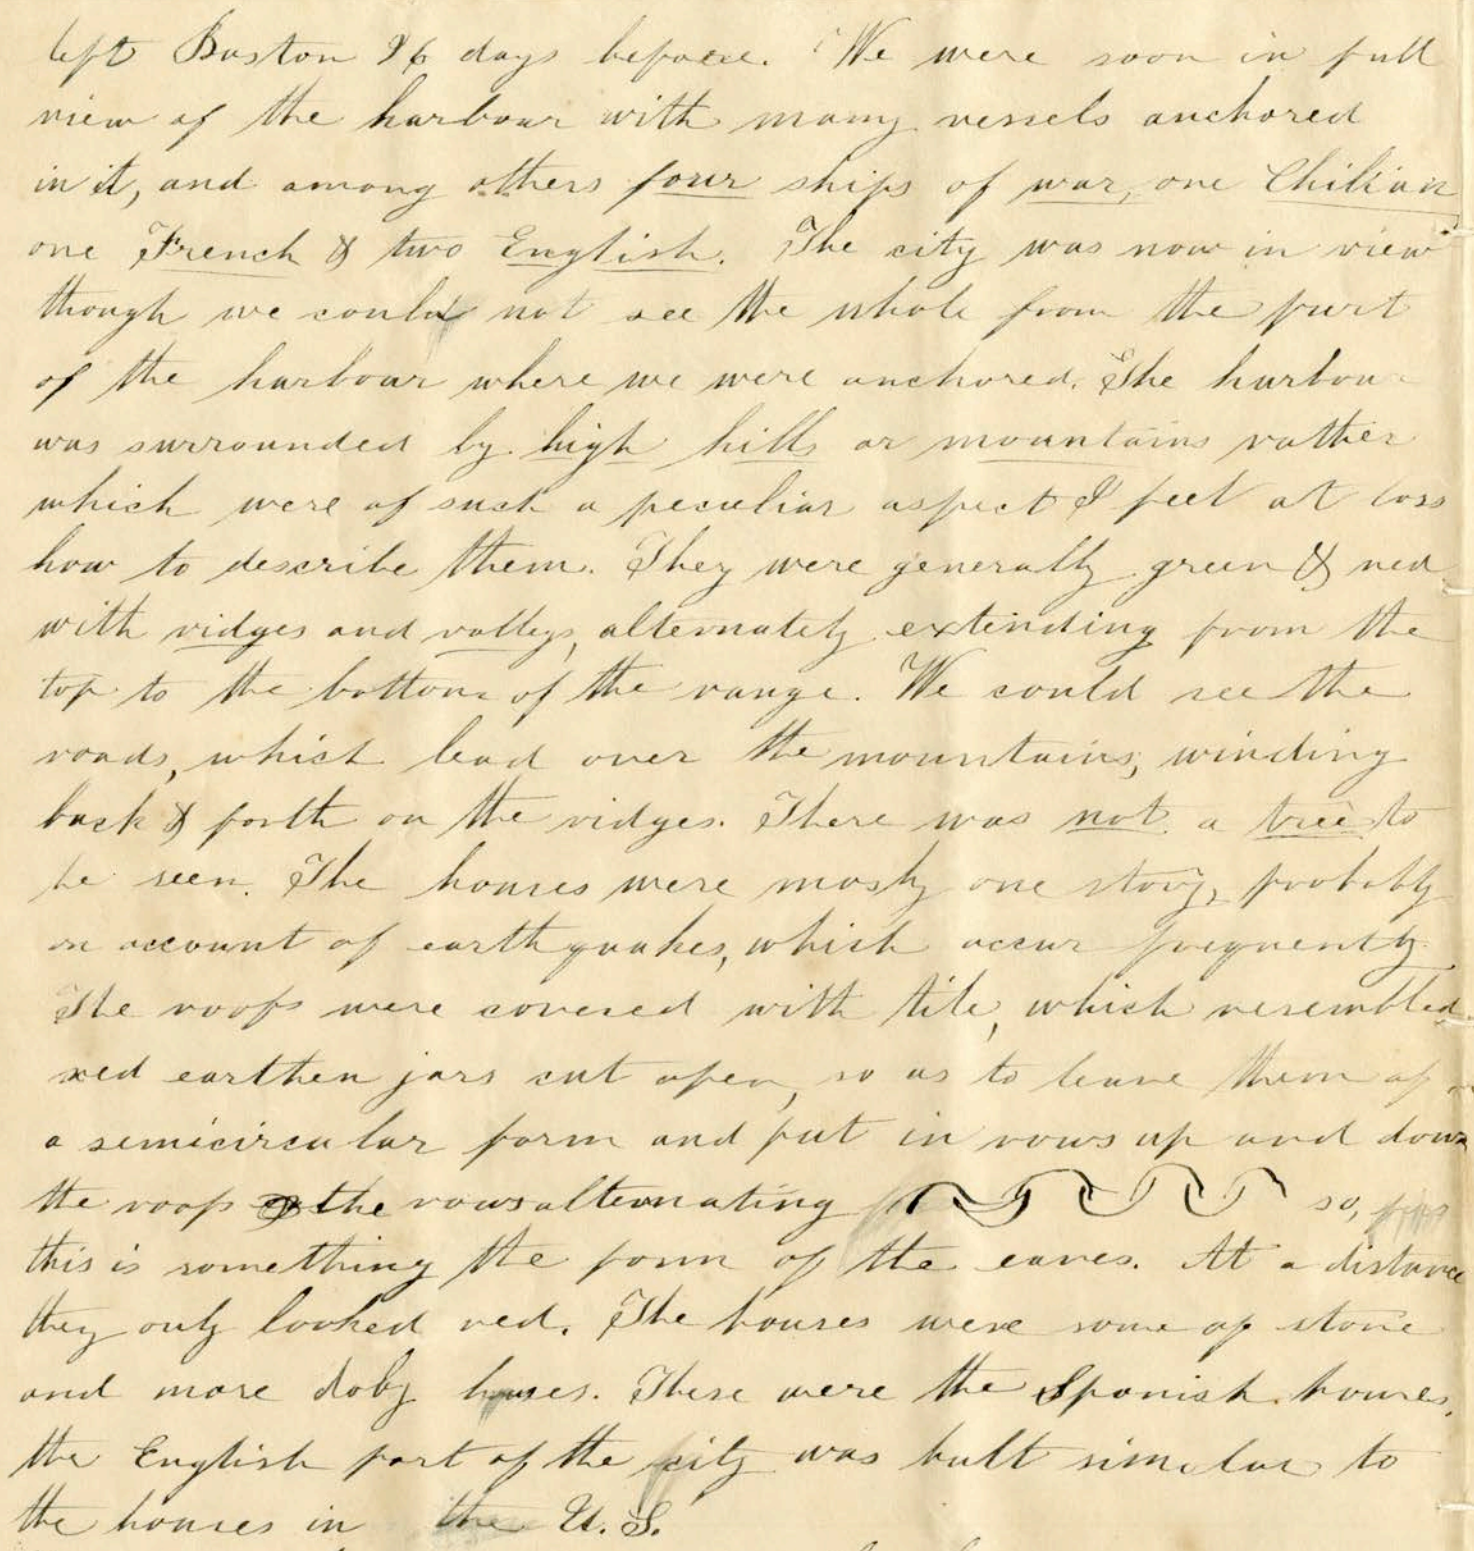 left Boston 96 days before. We were soon in full
view of the harbour with many vessels anchored
in it, and among others four ships of war, one Chilian
one French & two English. The city was now in view
though we could not see the whole from the part
of the harbour where we were anchored. The harbour
was surrounded by high hills or mountains rather
which were of such a peculiar aspect I feel at loss
how to describe them. They were generally green & red
with ridges and valleys, alternately extending from the
top to the bottom of the range. We could see the
roads, which lead over the mountains, winding
back & forth on the ridges. There was not a tree to
be seen. The houses were mosly one story, probably
on account of earthquakes, which occur frequently.
The roofs were covered with tile, which resembled
red earthen jars cut open, so as to leave them of
a semicircular form and put in rows up and down
the roof the rows alternating so,
this is something the form of the eaves. At a distance
they only looked red. The houses were some of stone
and more doby houses. These were the Spanish houses,
the English part of the city was built similar to
the houses in the U.S.